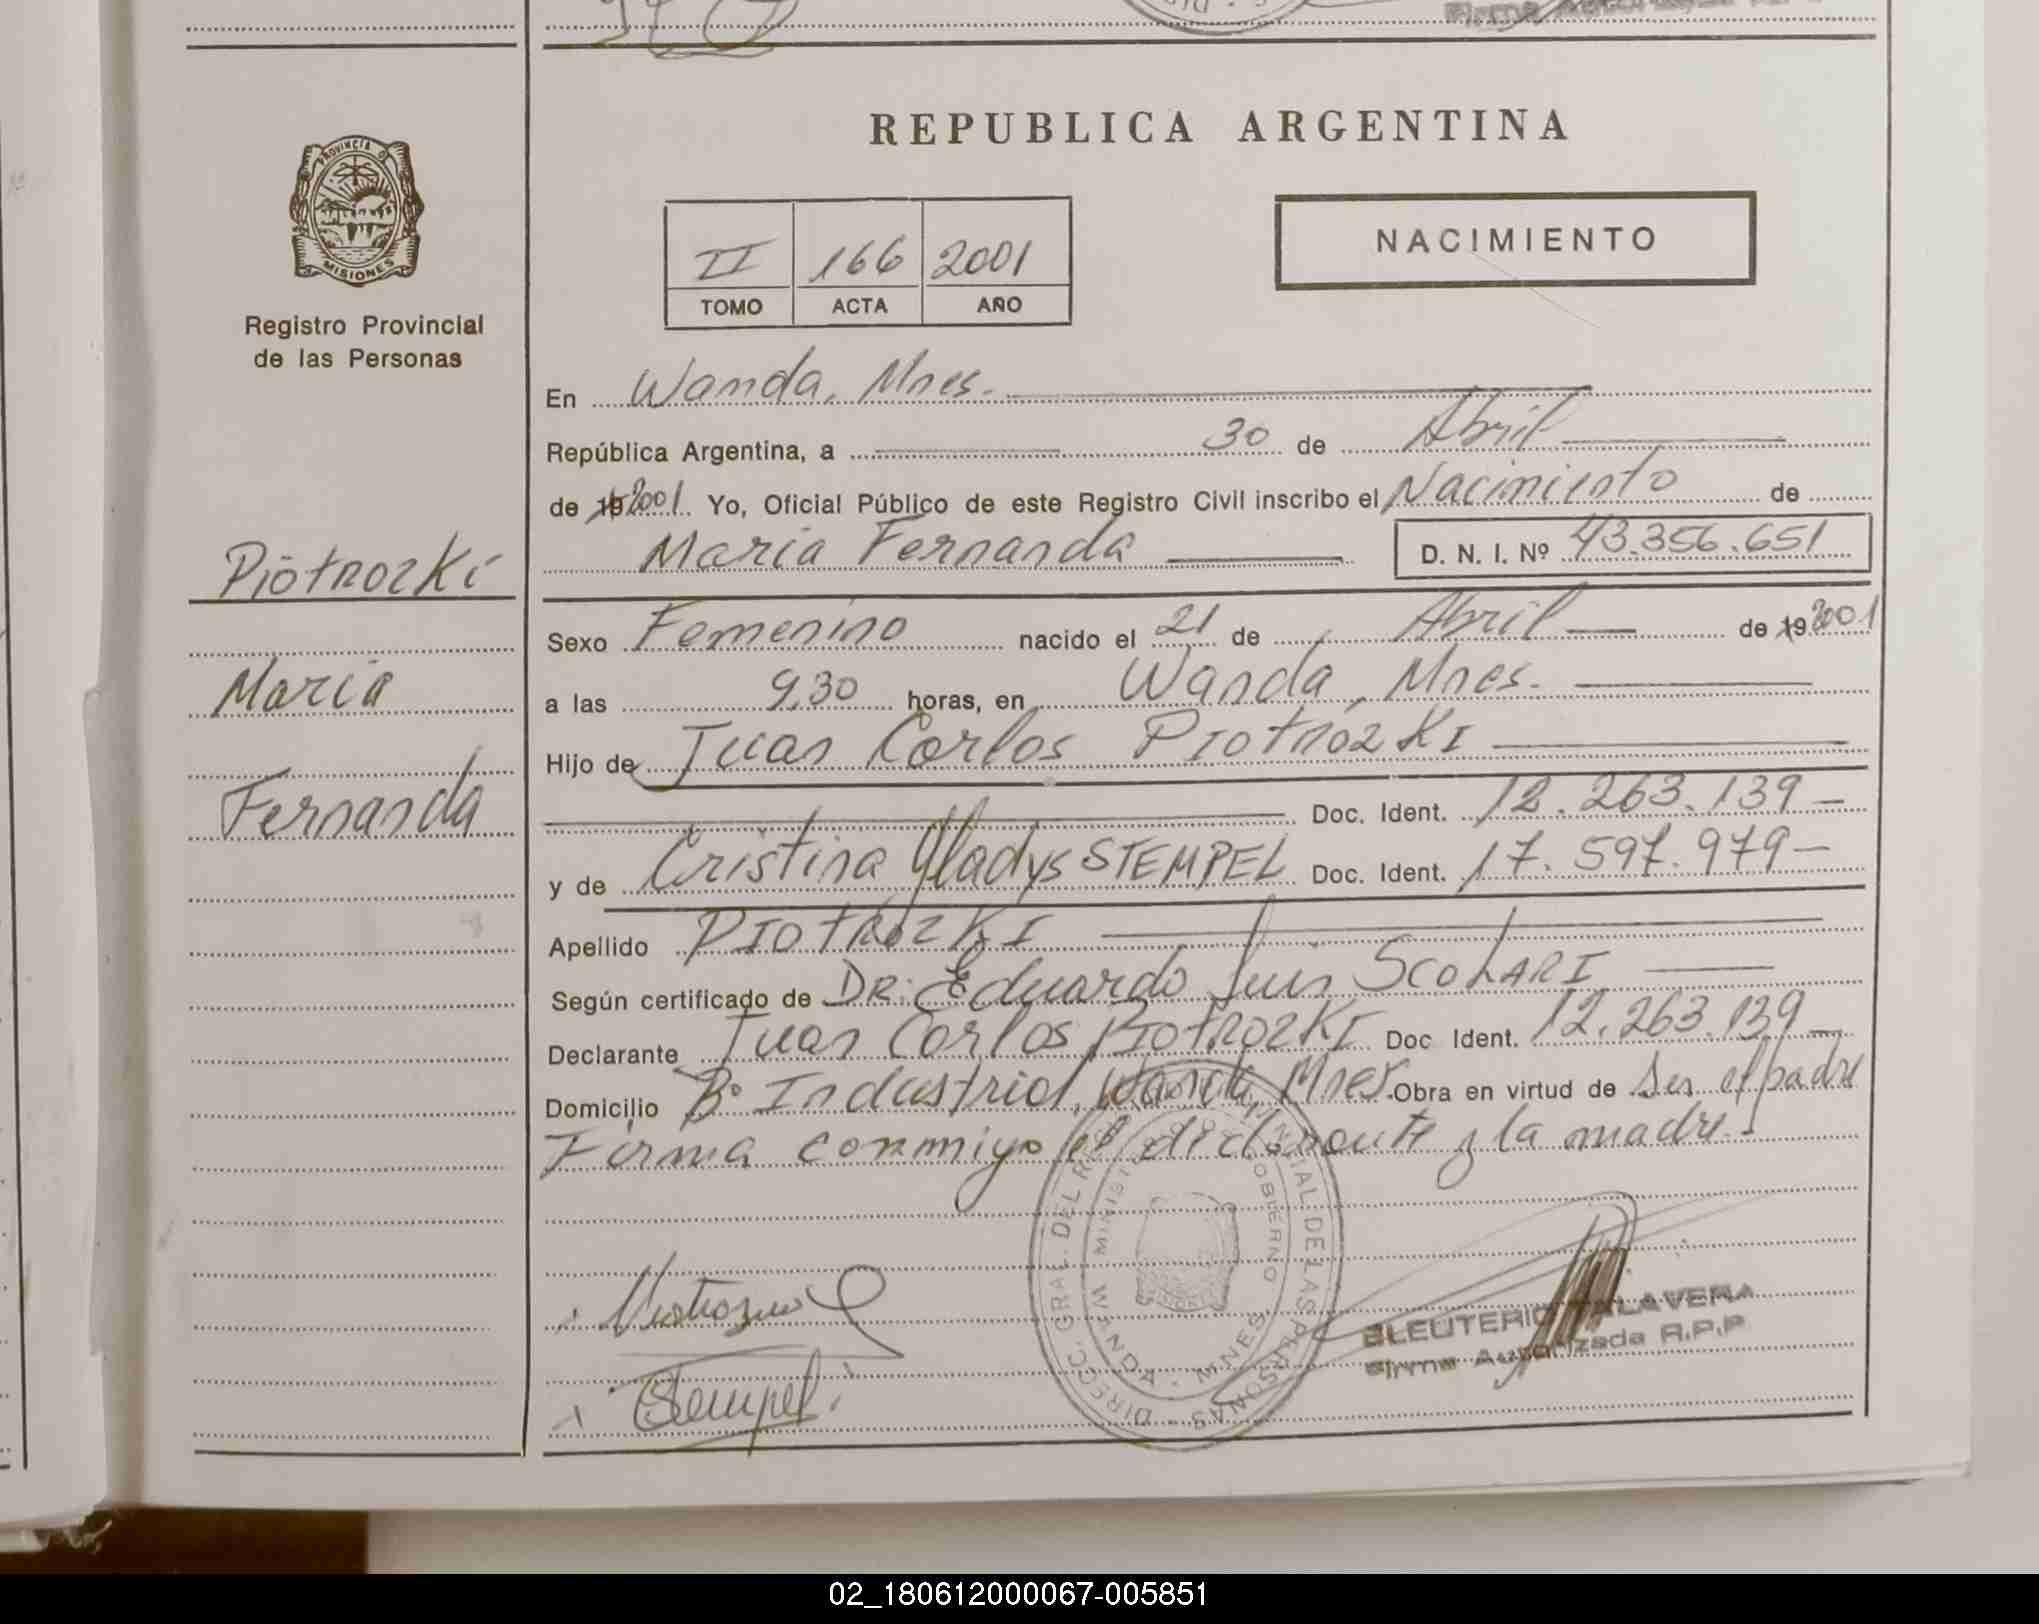 REPUBLICA ARGENTINA
PROVINCIA DE
MISIONES
Registro Provincial
de las Personas
NACIMIENTO
II 166 2001
TOMO ACTA AÑO
En Wanda, Mnes.
República Argentina, a 30 de Abril
de 19 2001. Yo, Oficial Público de este Registro Civil inscribo el Nacimiento de
Maria Fernanda D. N. I. Nº 43.356.651
Piotrozki
Maria
Fernanda
Sexo Femenino nacido el 21 de Abril de 19 2001
a las 9,30 horas, en Wanda, Mnes.
Hijo de Juan Carlos PIOTROZKI
Doc. Ident. 12.263.139
y de Cristina Gladys STEMPEL Doc. Ident. 17.597.979
Apellido PIOTROZKI
Según certificado de DR. Eduardo Luis SCOLARI
Declarante Juan Carlos PIOTROZKI Doc Ident. 12.263.139
Domicilio Bº Industrial, Wanda, Mnes. Obra en virtud de Ser el padre
Firma conmigo el declarante y la madre.
DIRECC. GRAL. DEL REG. PROVINCIAL DE LAS PERSONAS
MINISTERIO DE GOBIERNO
WANDA - MNES.
Stempel
ELEUTERIO TALAVERA
Firma Autorizada R.P.P
02_180612000067-005851